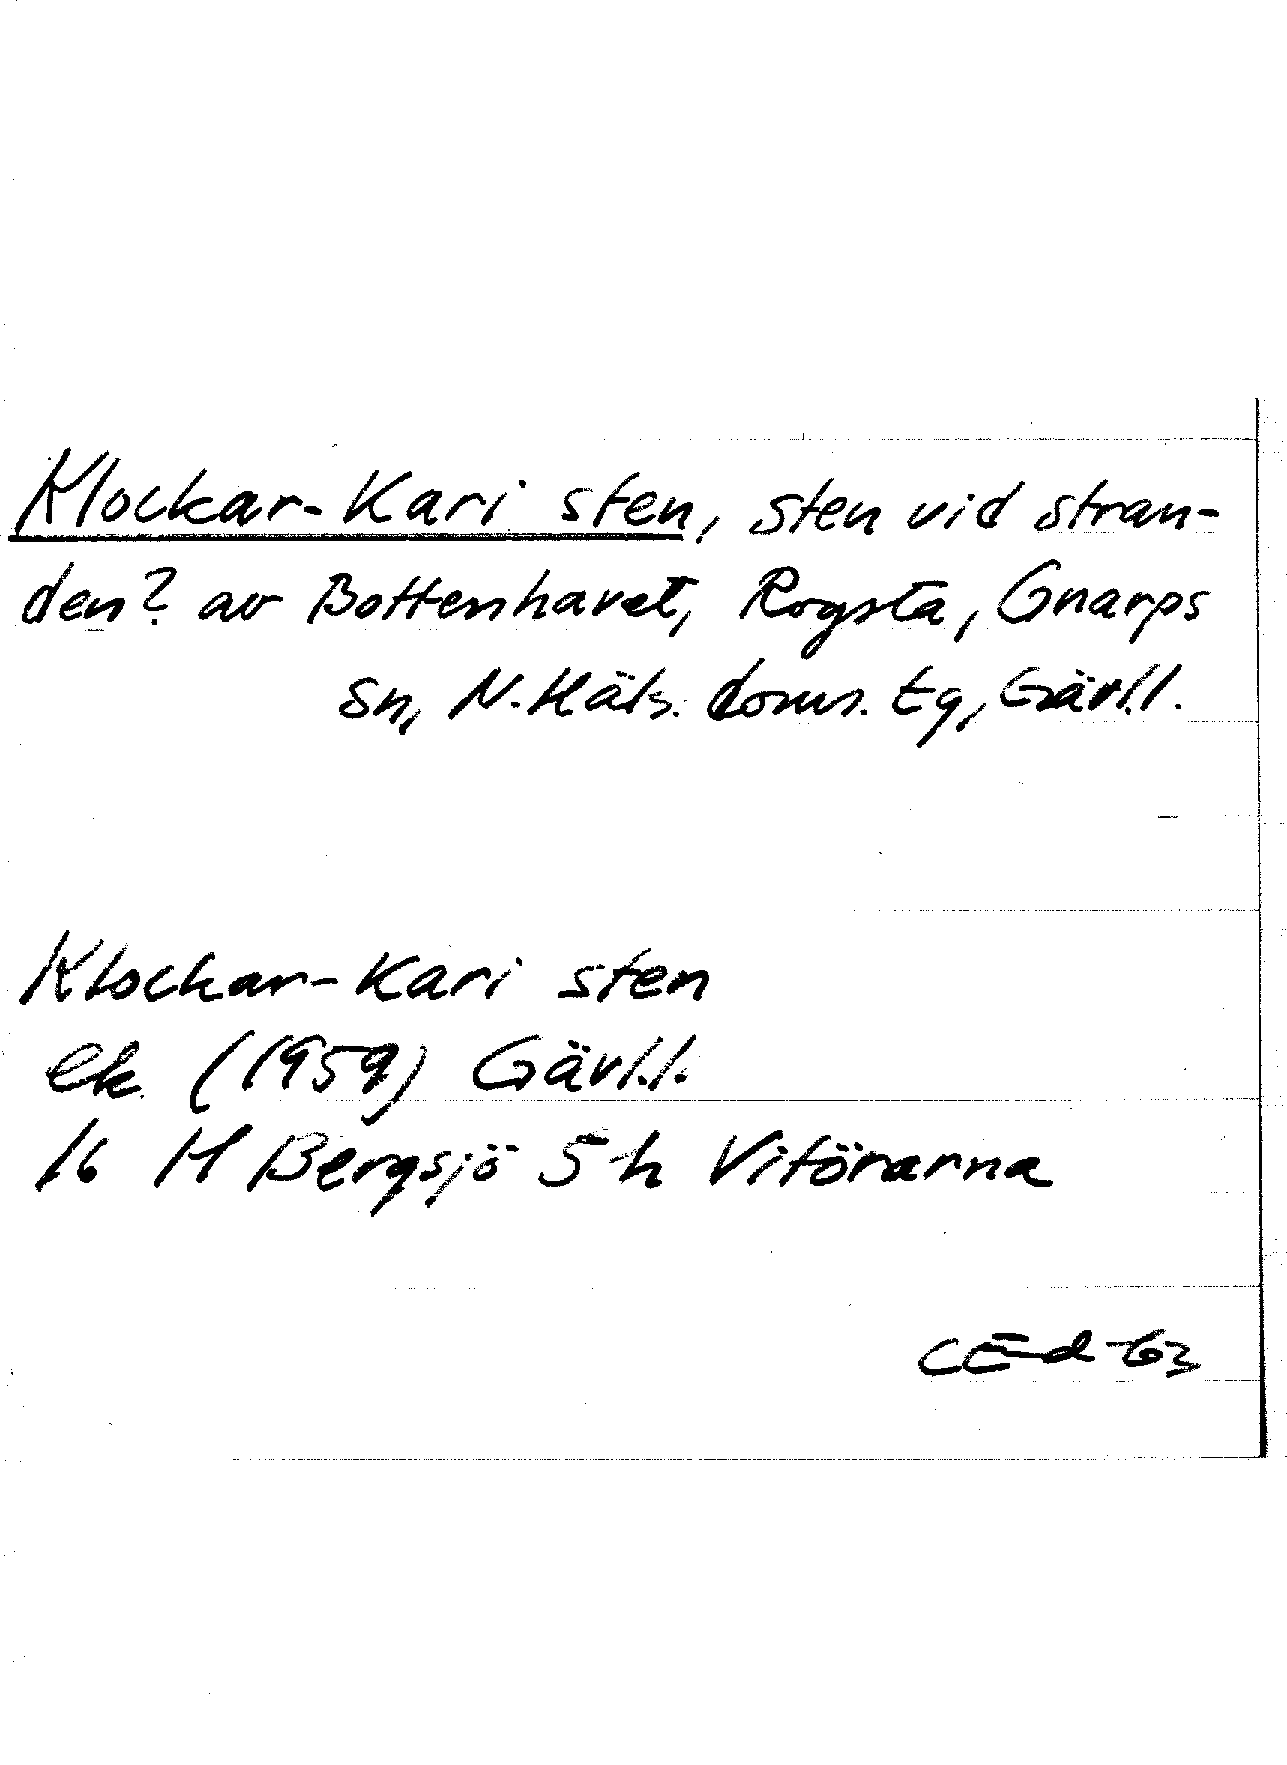 Klockar-Kari sten, sten vid stran-
den? av Bottenhavet, Rogsta, Gnarps
sn, N. Häls. doms. tg, Gävl.l.
Klockar-Kari sten
ek (1959) Gävl.l.
16 H Bergsjö 5 h Vitörarna
CEd -63